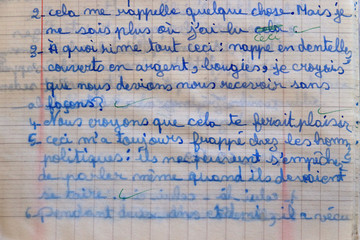 2. cela me rappelle quelque chose. Mais je
ne sais plus où j'ai lu cela
ceci
3. À quoi rime tout ceci : nappe en dentelle,
couverts en argent, bougies, je croyais
que nous devions nous recevoir sans
façons ?
4. Nous croyons que cela te ferait plaisir :
5. ceci m'a toujours frappé chez les homm
politiques : ils ne peuvent s'empêche
de parler même quand ils devraient
se taire.
6. pendant deux ans il a vécu